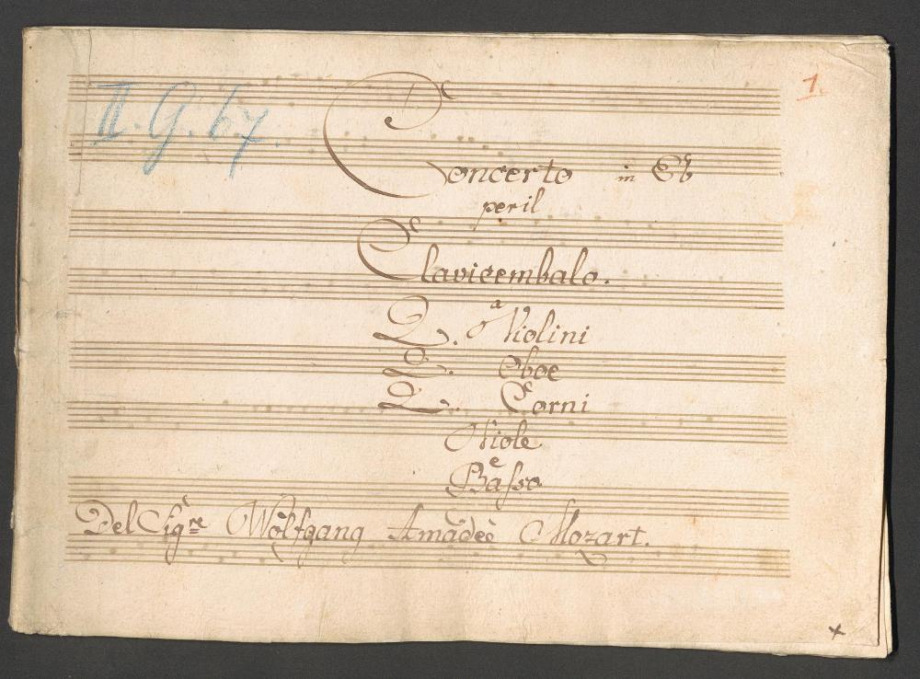 II. G. 67
1.
Concerto in Eb
per il
Clavicembalo.
a
2. Violini
2. Oboe
2. Corni
Viole
e
Basso
Del Sigre Wolfgang Amadeo Mozart.
x